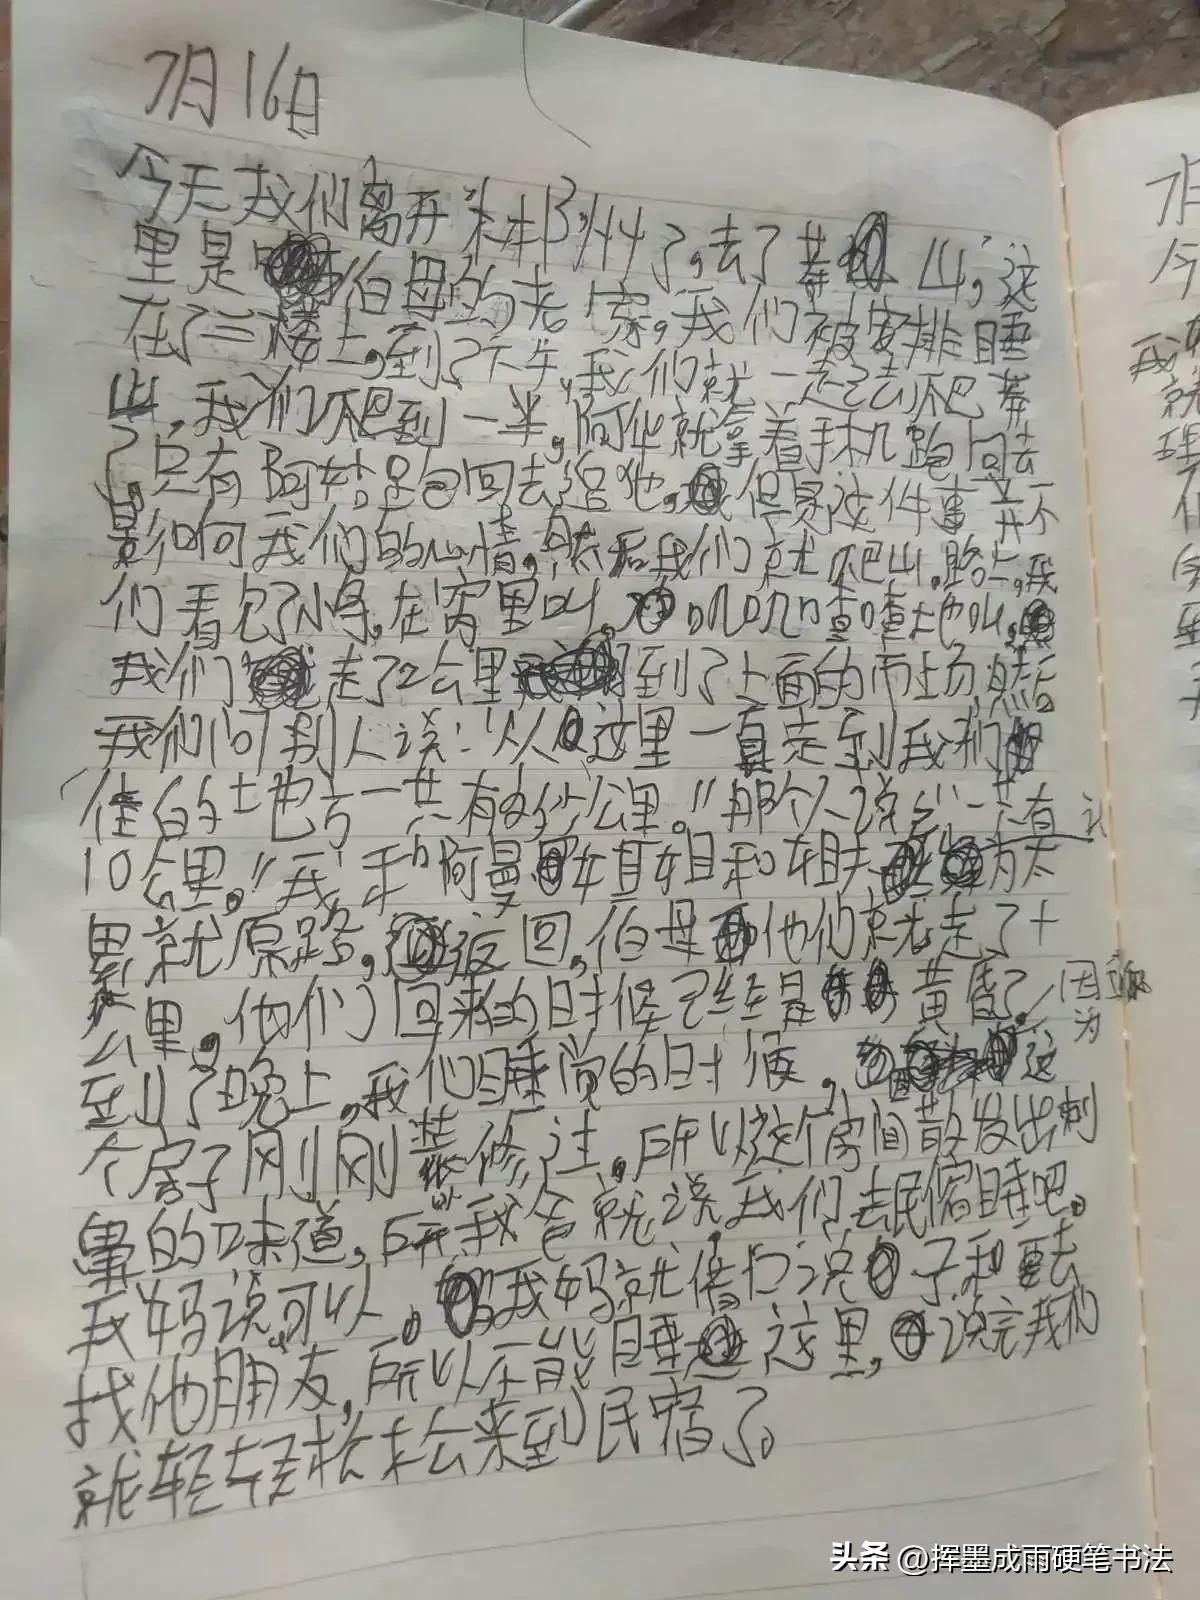 7月16日
今天我们离开 州了,去了莽山,这
里是伯母的老家,我们被安排睡
在了三楼上,到了下午,我们就一起去爬莽
山,我们爬到一半,阿华就拿着手机跑回去
了,只有阿姑跑回去追他,但是这件事并不
影响我们的心情,然后我们就爬山,路上,我
们看见了小鸟,在窝里叫,叽叽喳喳地叫,
我们走了2公里到了上面的市场,然后
我们问别人说:“从这里一直走到我们
住的地方一共有多少公里。”那个人说:“一共有
10公里。”我和阿曼姐姐和姐夫为太
累就原路,返回,伯母他们就走了十
公里,他们回来的时候已经是黄昏了,因为
到了晚上,我们睡觉的时候,这
个房子刚刚装修过,所以这个房间散发出刺
鼻的味道,所以我爸就说我们去民宿睡吧。
我妈说可以。我妈就借口说子和要去
找他朋友,所以不能睡这里,说完我们
就轻轻松松来到民宿了。
7月
今
我
就
理
头条 @挥墨成雨硬笔书法